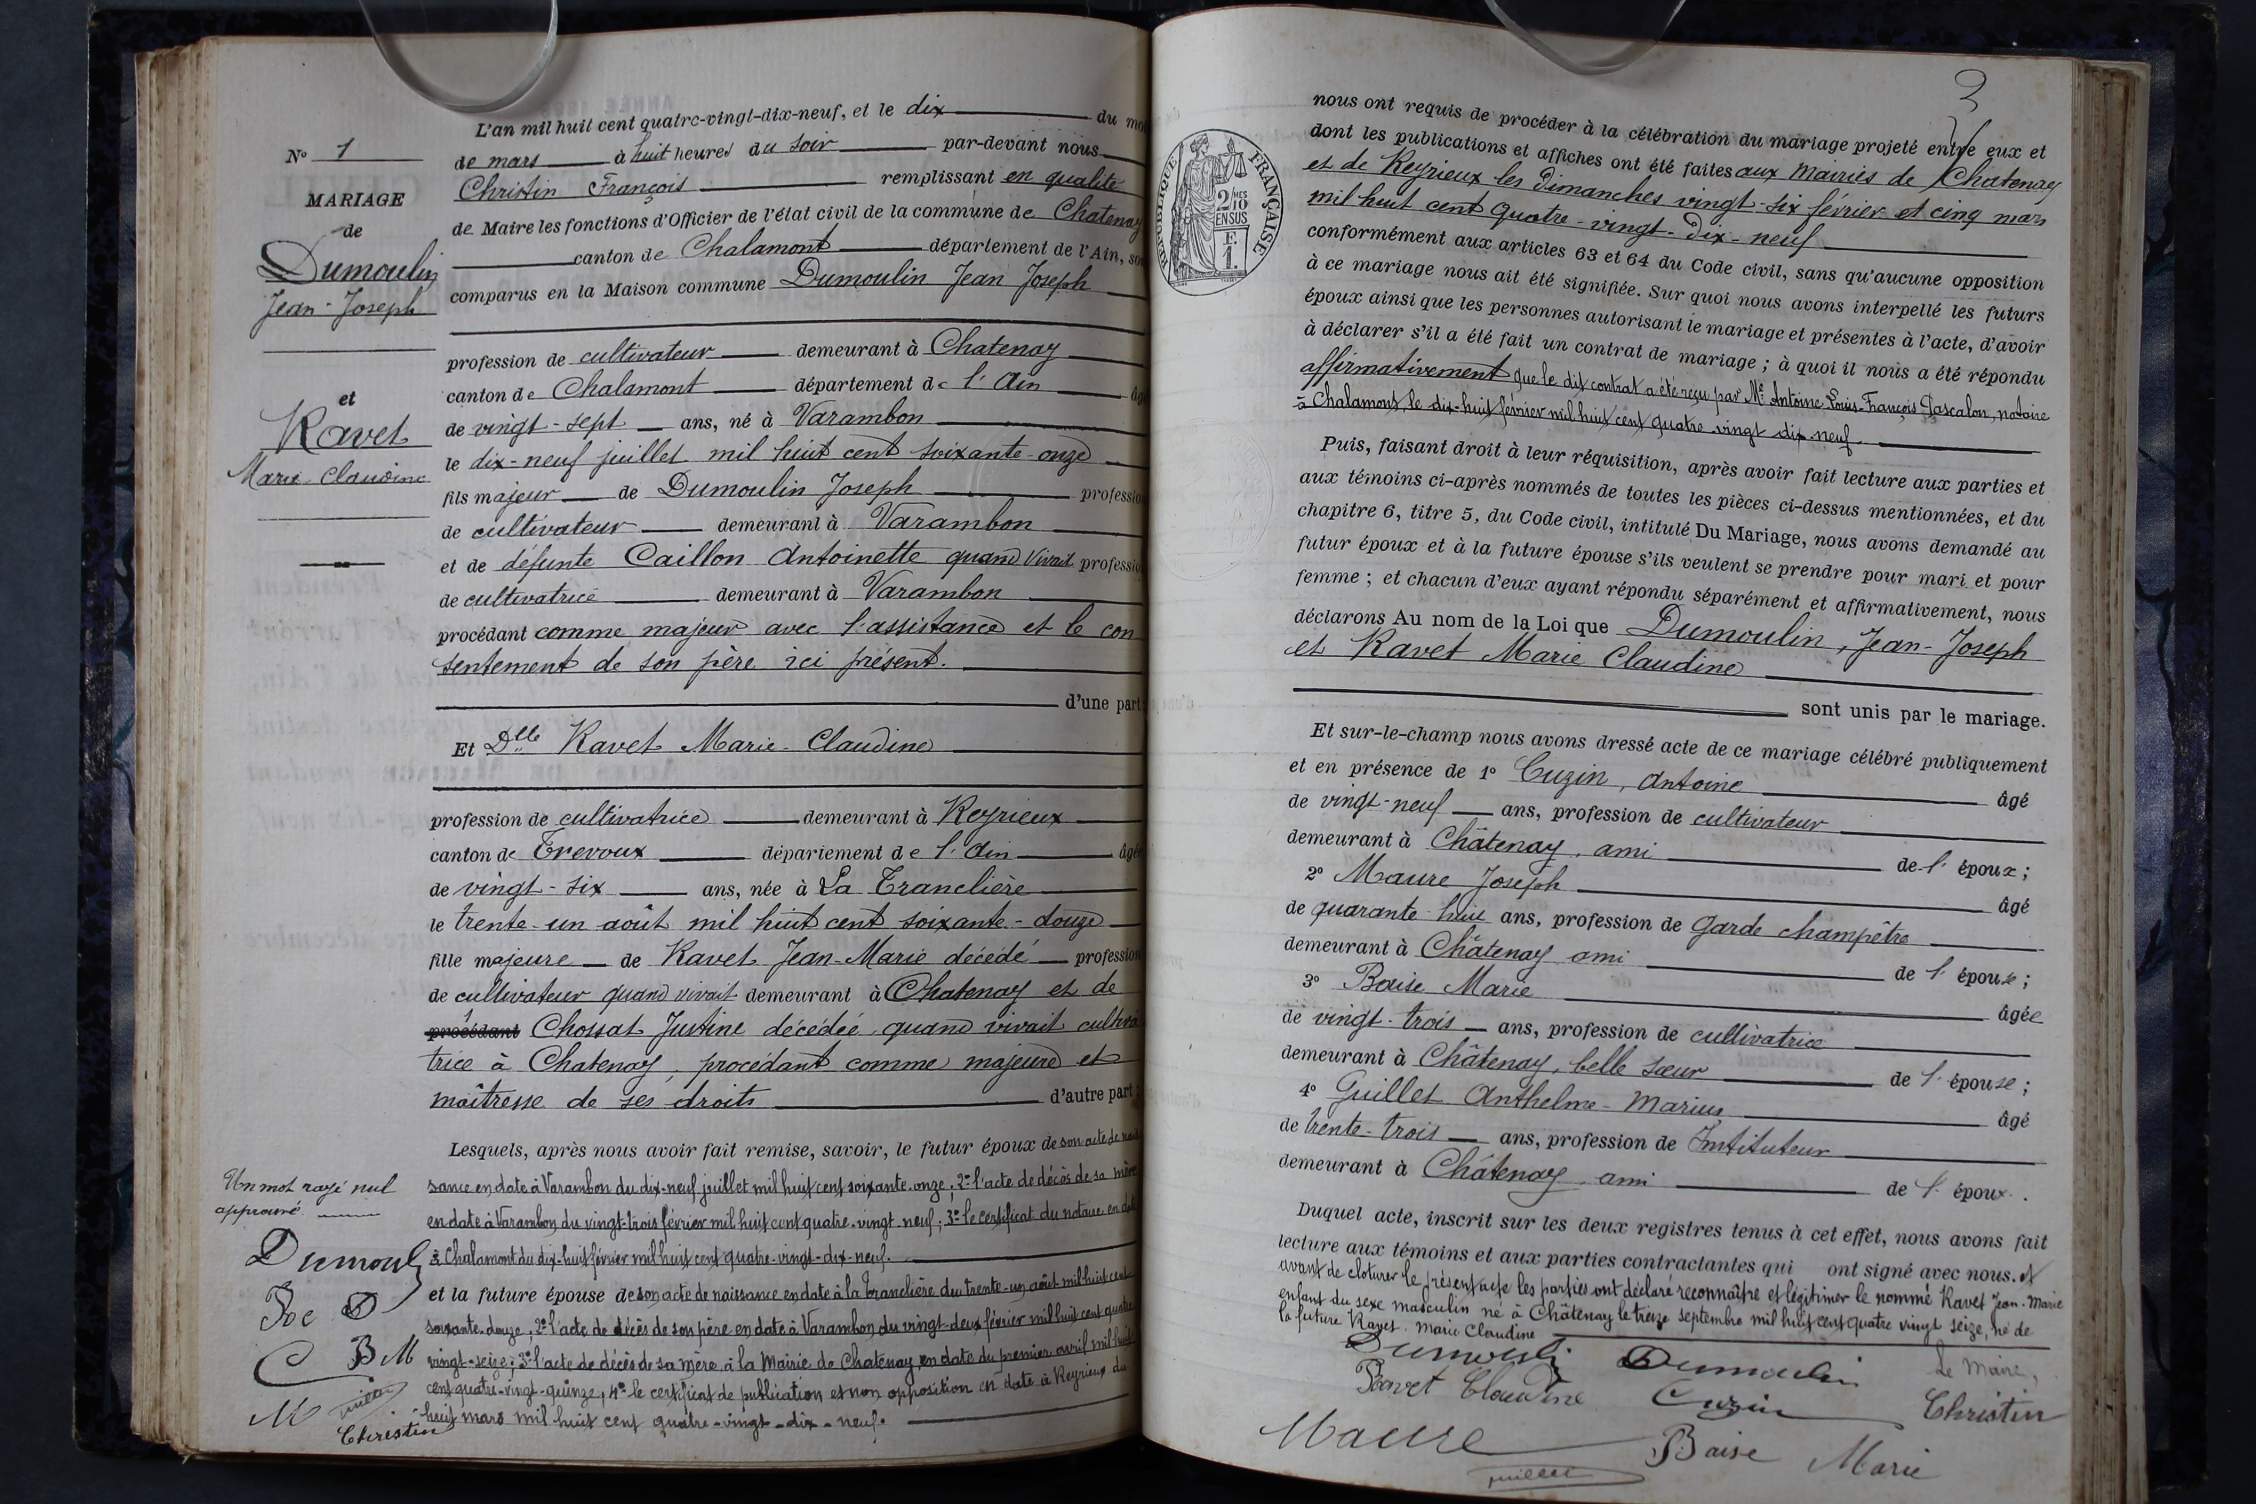 L'an mil huit cent quatre-vingt-dix-neuf, et le dix du mo
de mars à huit heures du soir par-devant nous
Christin François remplissant en qualité
de Maire les fonctions d'Officier de l'état civil de la commune de Chatenay
canton de Chalamont département de l'Ain, so
comparus en la Maison commune Dumoulin Jean Joseph
profession de cultivateur demeurant à Chatenay
canton de Chalamont département de l'Ain âgé
de vingt-sept ans, né à Varambon
le dix-neuf juillet mil huit cent soixante-onze
fils majeur de Dumoulin Joseph professio
de cultivateur demeurant à Varambon
et de défunte Caillon Antoinette quand vivait professio
de cultivatrice demeurant à Varambon
procédant comme majeur avec l'assistance et le con
sentement de son père ici présent.
d'une part
Et Dlle Ravet Marie-Claudine
profession de cultivatrice demeurant à Reyrieux
canton de Trevoux département de l'Ain âgée
de vingt-six ans, née à La Tranclière
le trente-un août mil huit cent soixante-douze
fille majeure de Ravet Jean-Marie décédé profession
de cultivateur quand vivait demeurant à Chatenay et de
procédant Chossat Justine décédée quand vivait cultiva
trice à Chatenay, procédant comme majeure et
maîtresse de ses droits d'autre part
Lesquels, après nous avoir fait remise, savoir, le futur époux de son acte de nais
sance en date à Varambon du dix-neuf juillet mil huit cent soixante-onze; 2º l'acte de décès de sa mère
en date à Varambon du vingt-trois février mil huit cent quatre-vingt-neuf; 3º le certificat du notaire en date
à Chalamont du dix-huit février mil huit cent quatre-vingt-dix-neuf.
et la future épouse de son acte de naissance en date à la Tranclière du trente-un août mil huit cent
soixante-douze; 2º l'acte de décès de son père en date à Varambon du vingt-deux février mil huit cent quatre
vingt-seize; 3º l'acte de décès de sa mère à la Mairie de Chatenay en date du premier avril mil huit
cent quatre-vingt-quinze, 4º le certificat de publication et non opposition en date à Reyrieux du
huit mars mil huit cent quatre-vingt-dix-neuf.
Nº 1
MARIAGE
de
Dumoulin
Jean-Joseph
et
Ravet
Marie Claudine
Un mot rayé nul
approuvé
Dumouli
D
C B M
M
Christin
3
nous ont requis de procéder à la célébration du mariage projeté entre eux et
dont les publications et affiches ont été faites aux Mairies de Chatenay
et de Reyrieux les dimanches vingt-six février et cinq mars
mil huit cent quatre-vingt-dix-neuf
conformément aux articles 63 et 64 du Code civil, sans qu'aucune opposition
à ce mariage nous ait été signifiée. Sur quoi nous avons interpellé les futurs
époux ainsi que les personnes autorisant le mariage et présentes à l'acte, d'avoir
à déclarer s'il a été fait un contrat de mariage; à quoi il nous a été répondu
affirmativement que le dit contrat a été reçu par Me Antoine Louis-François Pascalon, notaire
à Chalamont, le dix-huit février mil huit cent quatre-vingt dix-neuf
Puis, faisant droit à leur réquisition, après avoir fait lecture aux parties et
aux témoins ci-après nommés de toutes les pièces ci-dessus mentionnées, et du
chapitre 6, titre 5, du Code civil, intitulé Du Mariage, nous avons demandé au
futur époux et à la future épouse s'ils veulent se prendre pour mari et pour
femme; et chacun d'eux ayant répondu séparément et affirmativement, nous
déclarons Au nom de la Loi que Dumoulin, Jean-Joseph
et Ravet Marie Claudine
sont unis par le mariage.
Et sur-le-champ nous avons dressé acte de ce mariage célébré publiquement
et en présence de 1º Cuzin, Antoine âgé
de vingt-neuf ans, profession de cultivateur
demeurant à Châtenay, ami de l'époux;
2º Maure Joseph âgé
de quarante-huit ans, profession de garde champêtre
demeurant à Châtenay ami de l'épouse;
3º Baise Marie âgée
de vingt-trois ans, profession de cultivatrice
demeurant à Châtenay, belle sœur de l'épouse;
4º Guillet Anthelme-Marius âgé
de trente-trois ans, profession de Instituteur
demeurant à Châtenay ami de l'époux.
Duquel acte, inscrit sur les deux registres tenus à cet effet, nous avons fait
lecture aux témoins et aux parties contractantes qui ont signé avec nous. et
avant de cloturer le présent acte les parties ont déclaré reconnaître et légitimer le nommé Ravet Jean-Marie
enfant du sexe masculin né à Châtenay le treize septembre mil huit cent quatre vingt seize, né de
la future Ravet. Marie Claudine
Dumoulin Dumoulin Le Maire,
Ravet Claudine Cuzin Christin
Maure Baise Marie
guillet
RÉPUBLIQUE FRANÇAISE
2/10
EN SUS